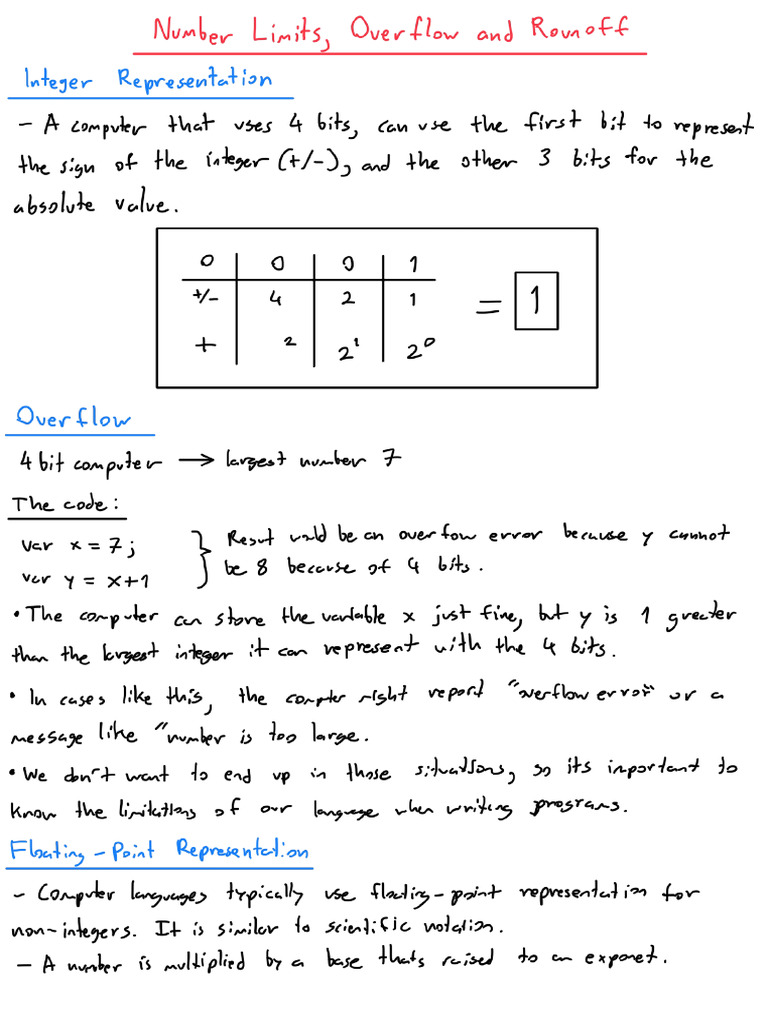 Number Limits, Overflow and Rounoff
Integer Representation
- A computer that uses 4 bits, can use the first bit to represent
the sign of the integer (+/-), and the other 3 bits for the
absolute value.
0 | 0 | 0 | 1
+/- | 4 | 2 | 1 = 1
+ | 2 | 2¹ | 2⁰
Overflow
4 bit computer → largest number 7
The code:
var x = 7;
var y = x+1
} Result would be an overflow error because y cannot
be 8 because of 4 bits.
• The computer can store the variable x just fine, but y is 1 greater
than the largest integer it can represent with the 4 bits.
• In cases like this, the computer might report "overflow error" or a
message like "number is too large.
• We don't want to end up in those situations, so its important to
know the limitations of our language when writing programs.
Floating-Point Representation
- Computer languages typically use floating-point representation for
non-integers. It is similar to scientific notation.
- A number is multiplied by a base thats raised to an exponet.